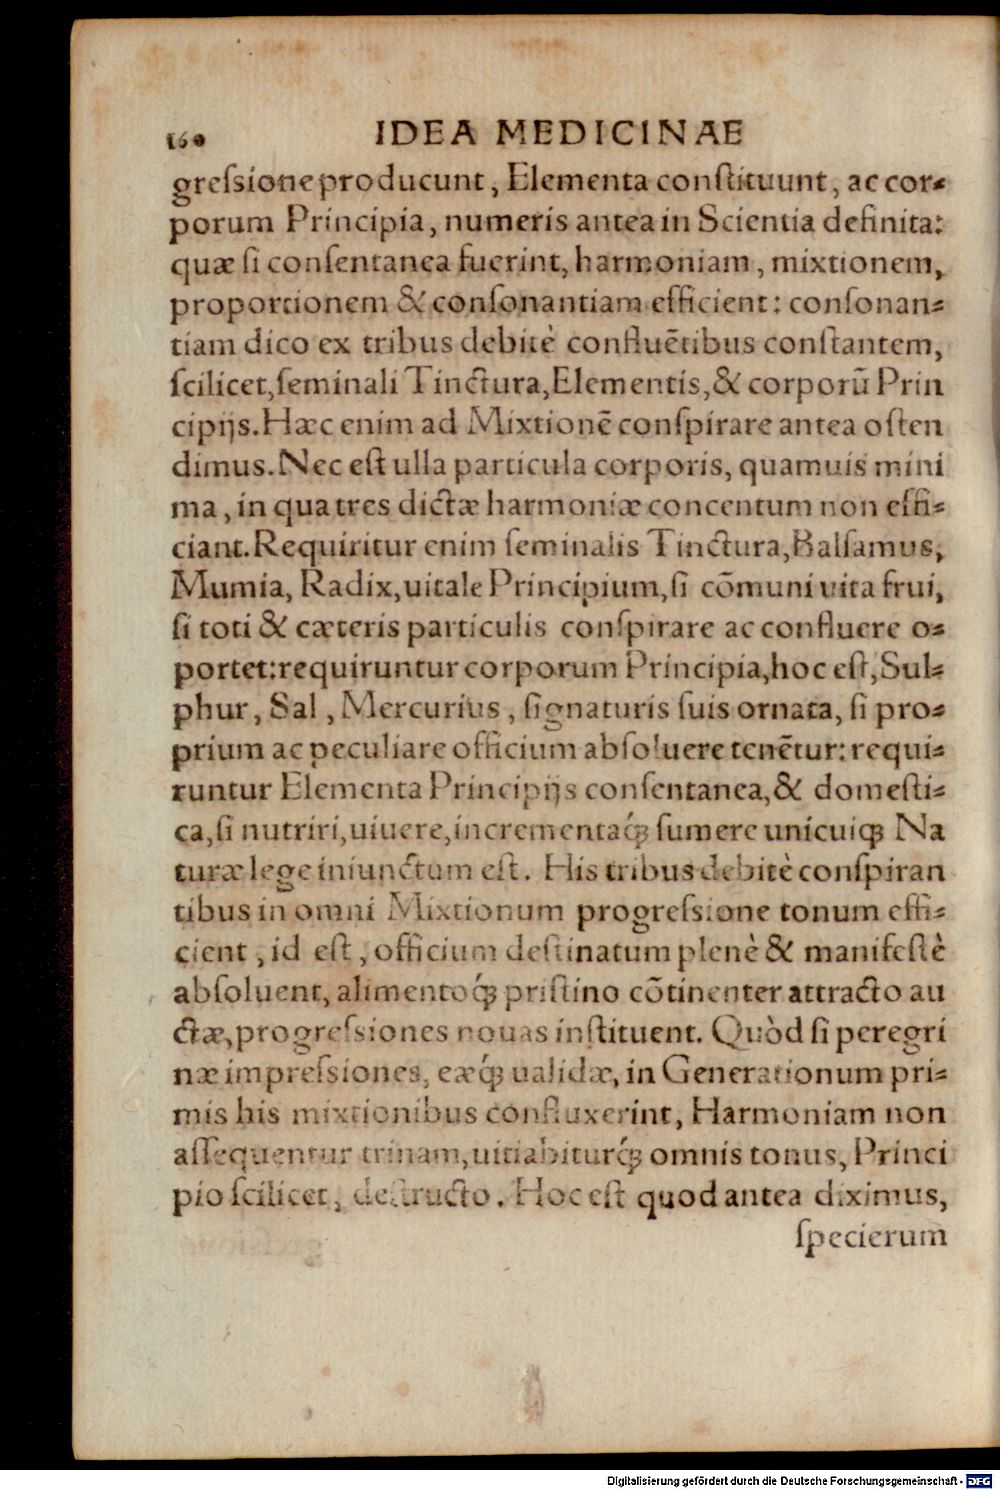 160 IDEA MEDICINAE
greſsione producunt, Elementa conſtituunt, ac cor-
porum Principia, numeris antea in Scientia definita:
quæ ſi conſentanea fuerint, harmoniam, mixtionem,
proportionem & conſonantiam efficient: conſonan-
tiam dico ex tribus debitè confluẽtibus conſtantem,
ſcilicet, ſeminali Tinctura, Elementis, & corporũ Prin
cipijs. Hæc enim ad Mixtionẽ conſpirare antea oſten
dimus. Nec eſt ulla particula corporis, quamuis mini
ma, in qua tres dictæ harmoniæ concentum non effi-
ciant. Requiritur enim ſeminalis Tinctura, Balſamus,
Mumia, Radix, uitale Principium, ſi cõmuni vita frui,
ſi toti & cæteris particulis conſpirare ac confluere o-
portet: requiruntur corporum Principia, hoc eſt, Sul-
phur, Sal, Mercurius, ſignaturis ſuis ornata, ſi pro-
prium ac peculiare officium abſoluere tenẽtur: requi-
runtur Elementa Principijs conſentanea, & domeſti-
ca, ſi nutriri, uiuere, incrementaq́ꝫ ſumere unicuiqꝫ Na
turæ lege iniunctum eſt. His tribus debitè conſpiran
tibus in omni Mixtionum progreſsione tonum effi-
cient, id eſt, officium deſtinatum plenè & manifeſtè
abſoluent, alimentoq́ꝫ priſtino cõtinenter attracto au
ctæ, progreſsiones nouas inſtituent. Quòd ſi peregri
næ impreſsiones, eæq́ꝫ ualidæ, in Generationum pri-
mis his mixtionibus confluxerint, Harmoniam non
aſſequentur trinam, uitiabiturq́ꝫ omnis tonus, Princi
pio ſcilicet, deſtructo. Hoc eſt quod antea diximus,
ſpecierum
Digitalisierung gefördert durch die Deutsche Forschungsgemeinschaft - DFG